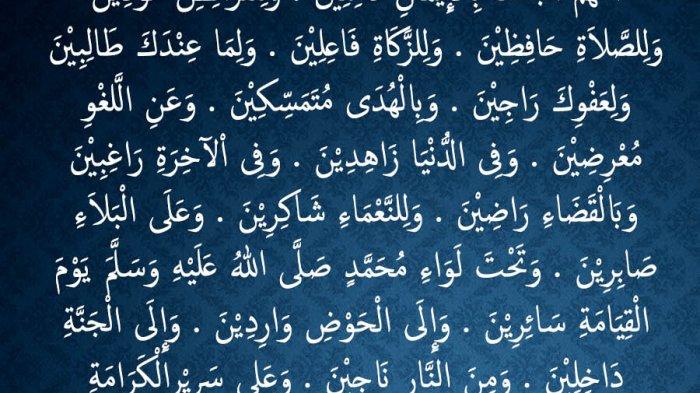 وَلِلصَّلاَةِ حَافِظِيْنَ . وَلِلزَّكَاةِ فَاعِلِيْنَ . وَلِمَا عِنْدَكَ طَالِبِيْنَ
وَلِعَفْوِكَ رَاجِيْنَ . وَبِالْهُدَى مُتَمَسِّكِيْنَ . وَعَنِ الَّلغْوِ
مُعْرِضِيْنَ . وَفِى الدُّنْيَا زَاهِدِيْنَ . وَفِى اْلآخِرَةِ رَاغِبِيْنَ
وَبَالْقَضَاءِ رَاضِيْنَ . وَلِلنَّعْمَاءِ شَاكِرِيْنَ . وَعَلَى الْبَلاَءِ
صَابِرِيْنَ . وَتَحْتَ لَوَاءِ مُحَمَّدٍ صَلَّى اللهُ عَلَيْهِ وَسَلَّمَ يَوْمَ
الْقِيَامَةِ سَائِرِيْنَ . وَإِلَى الْحَوْضِ وَارِدِيْنَ . وَإِلَى الْجَنَّةِ
دَاخِلِيْنَ . وَمِنَ النَّارِ نَاجِيْنَ . وَعَلَى سَرِيْرِالْكَرَامَةِ